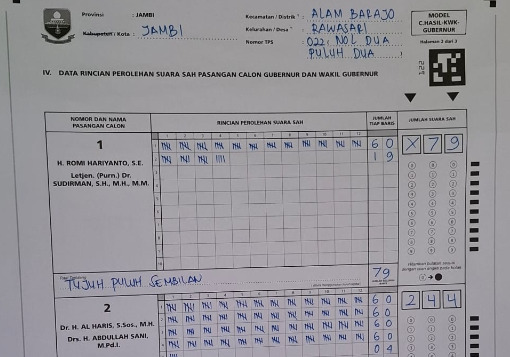 Provinsi : JAMBI
Kabupaten / Kota : JAMBI
Kecamatan / Distrik : ALAM BARAJO
Kelurahan / Desa : RAWASARI
Nomor TPS : 022, NOL DUA
PULUH DUA
MODEL
C.HASIL-KWK-
GUBERNUR
Halaman 2 dari 3
IV. DATA RINCIAN PEROLEHAN SUARA SAH PASANGAN CALON GUBERNUR DAN WAKIL GUBERNUR
NOMOR DAN NAMA
PASANGAN CALON
RINCIAN PEROLEHAN SUARA SAH
JUMLAH
TIAP BARIS
JUMLAH SUARA SAH
1 2 3 4 5 6 7 8 9 10 11 12
1
H. ROMI HARIYANTO, S.E.
Letjen. (Purn.) Dr.
SUDIRMAN, S.H., M.H., M.M.
60
19
X79
TUJUH PULUH SEMBILAN
79
1 2 3 4 5 6 7 8 9 10 11 12
2
Dr. H. AL HARIS, S.Sos., M.H.
Drs. H. ABDULLAH SANI,
M.Pd.I.
60
60
60
60
04
244